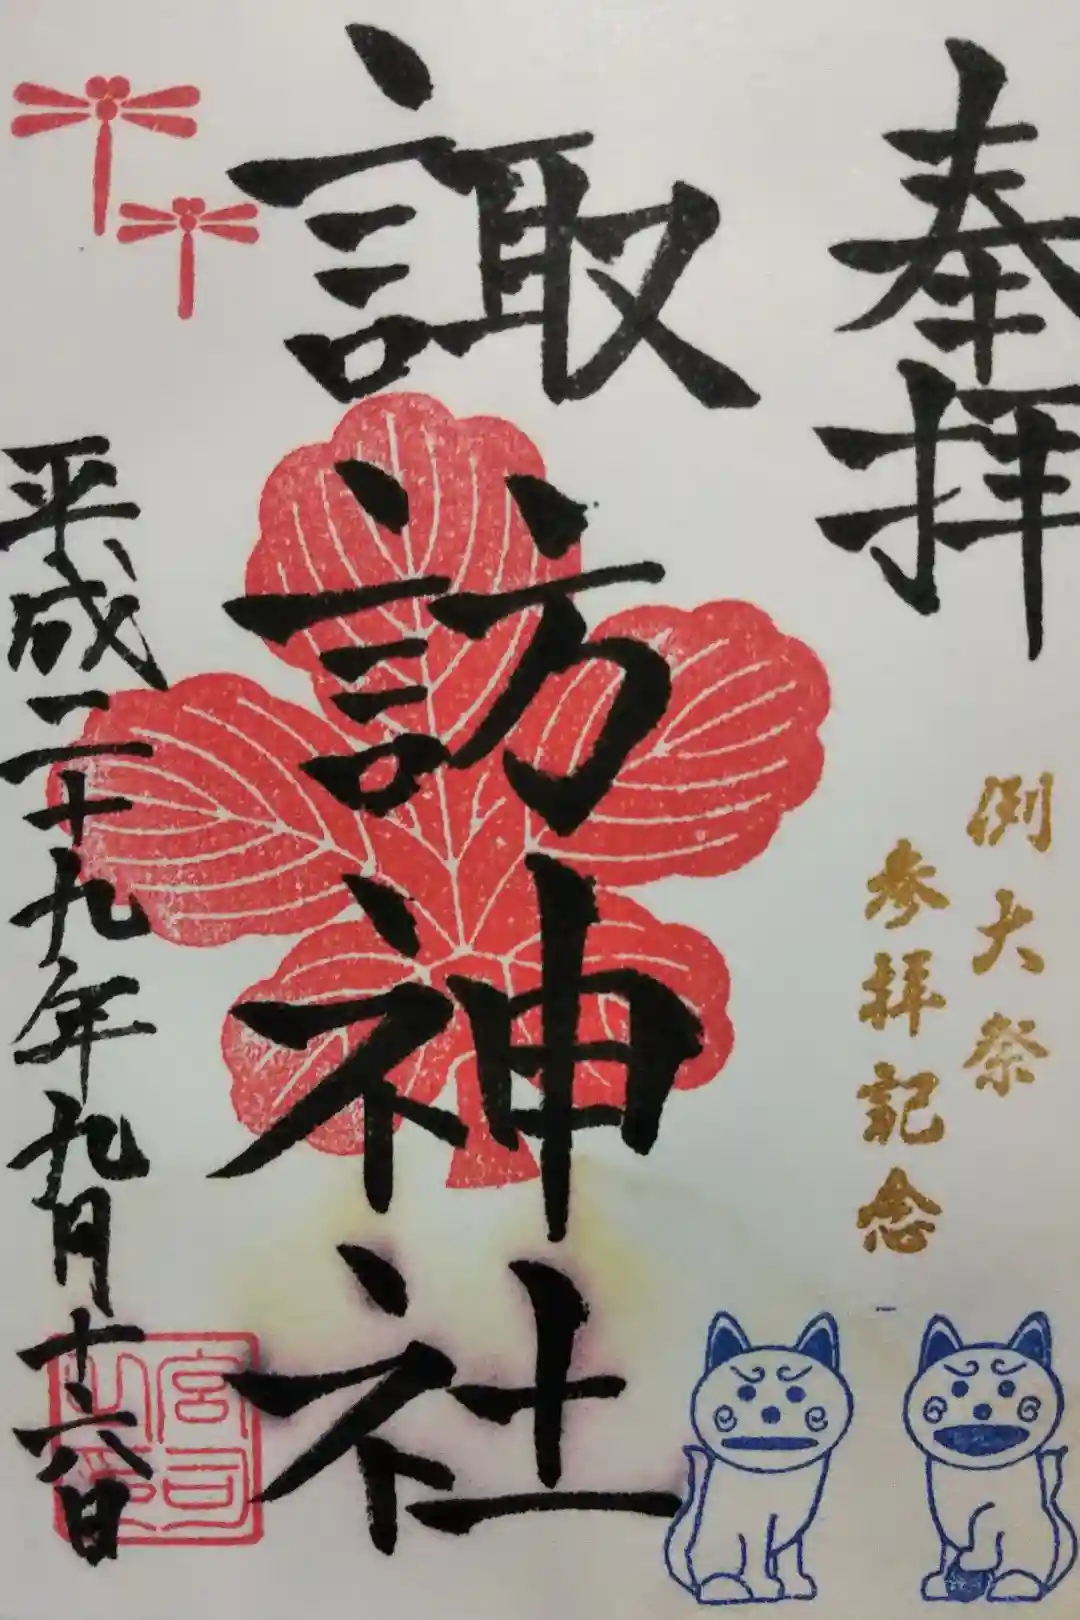 奉拝
例大祭
参拝記念
諏訪神社
平成二十九年九月十六日
宮司之印